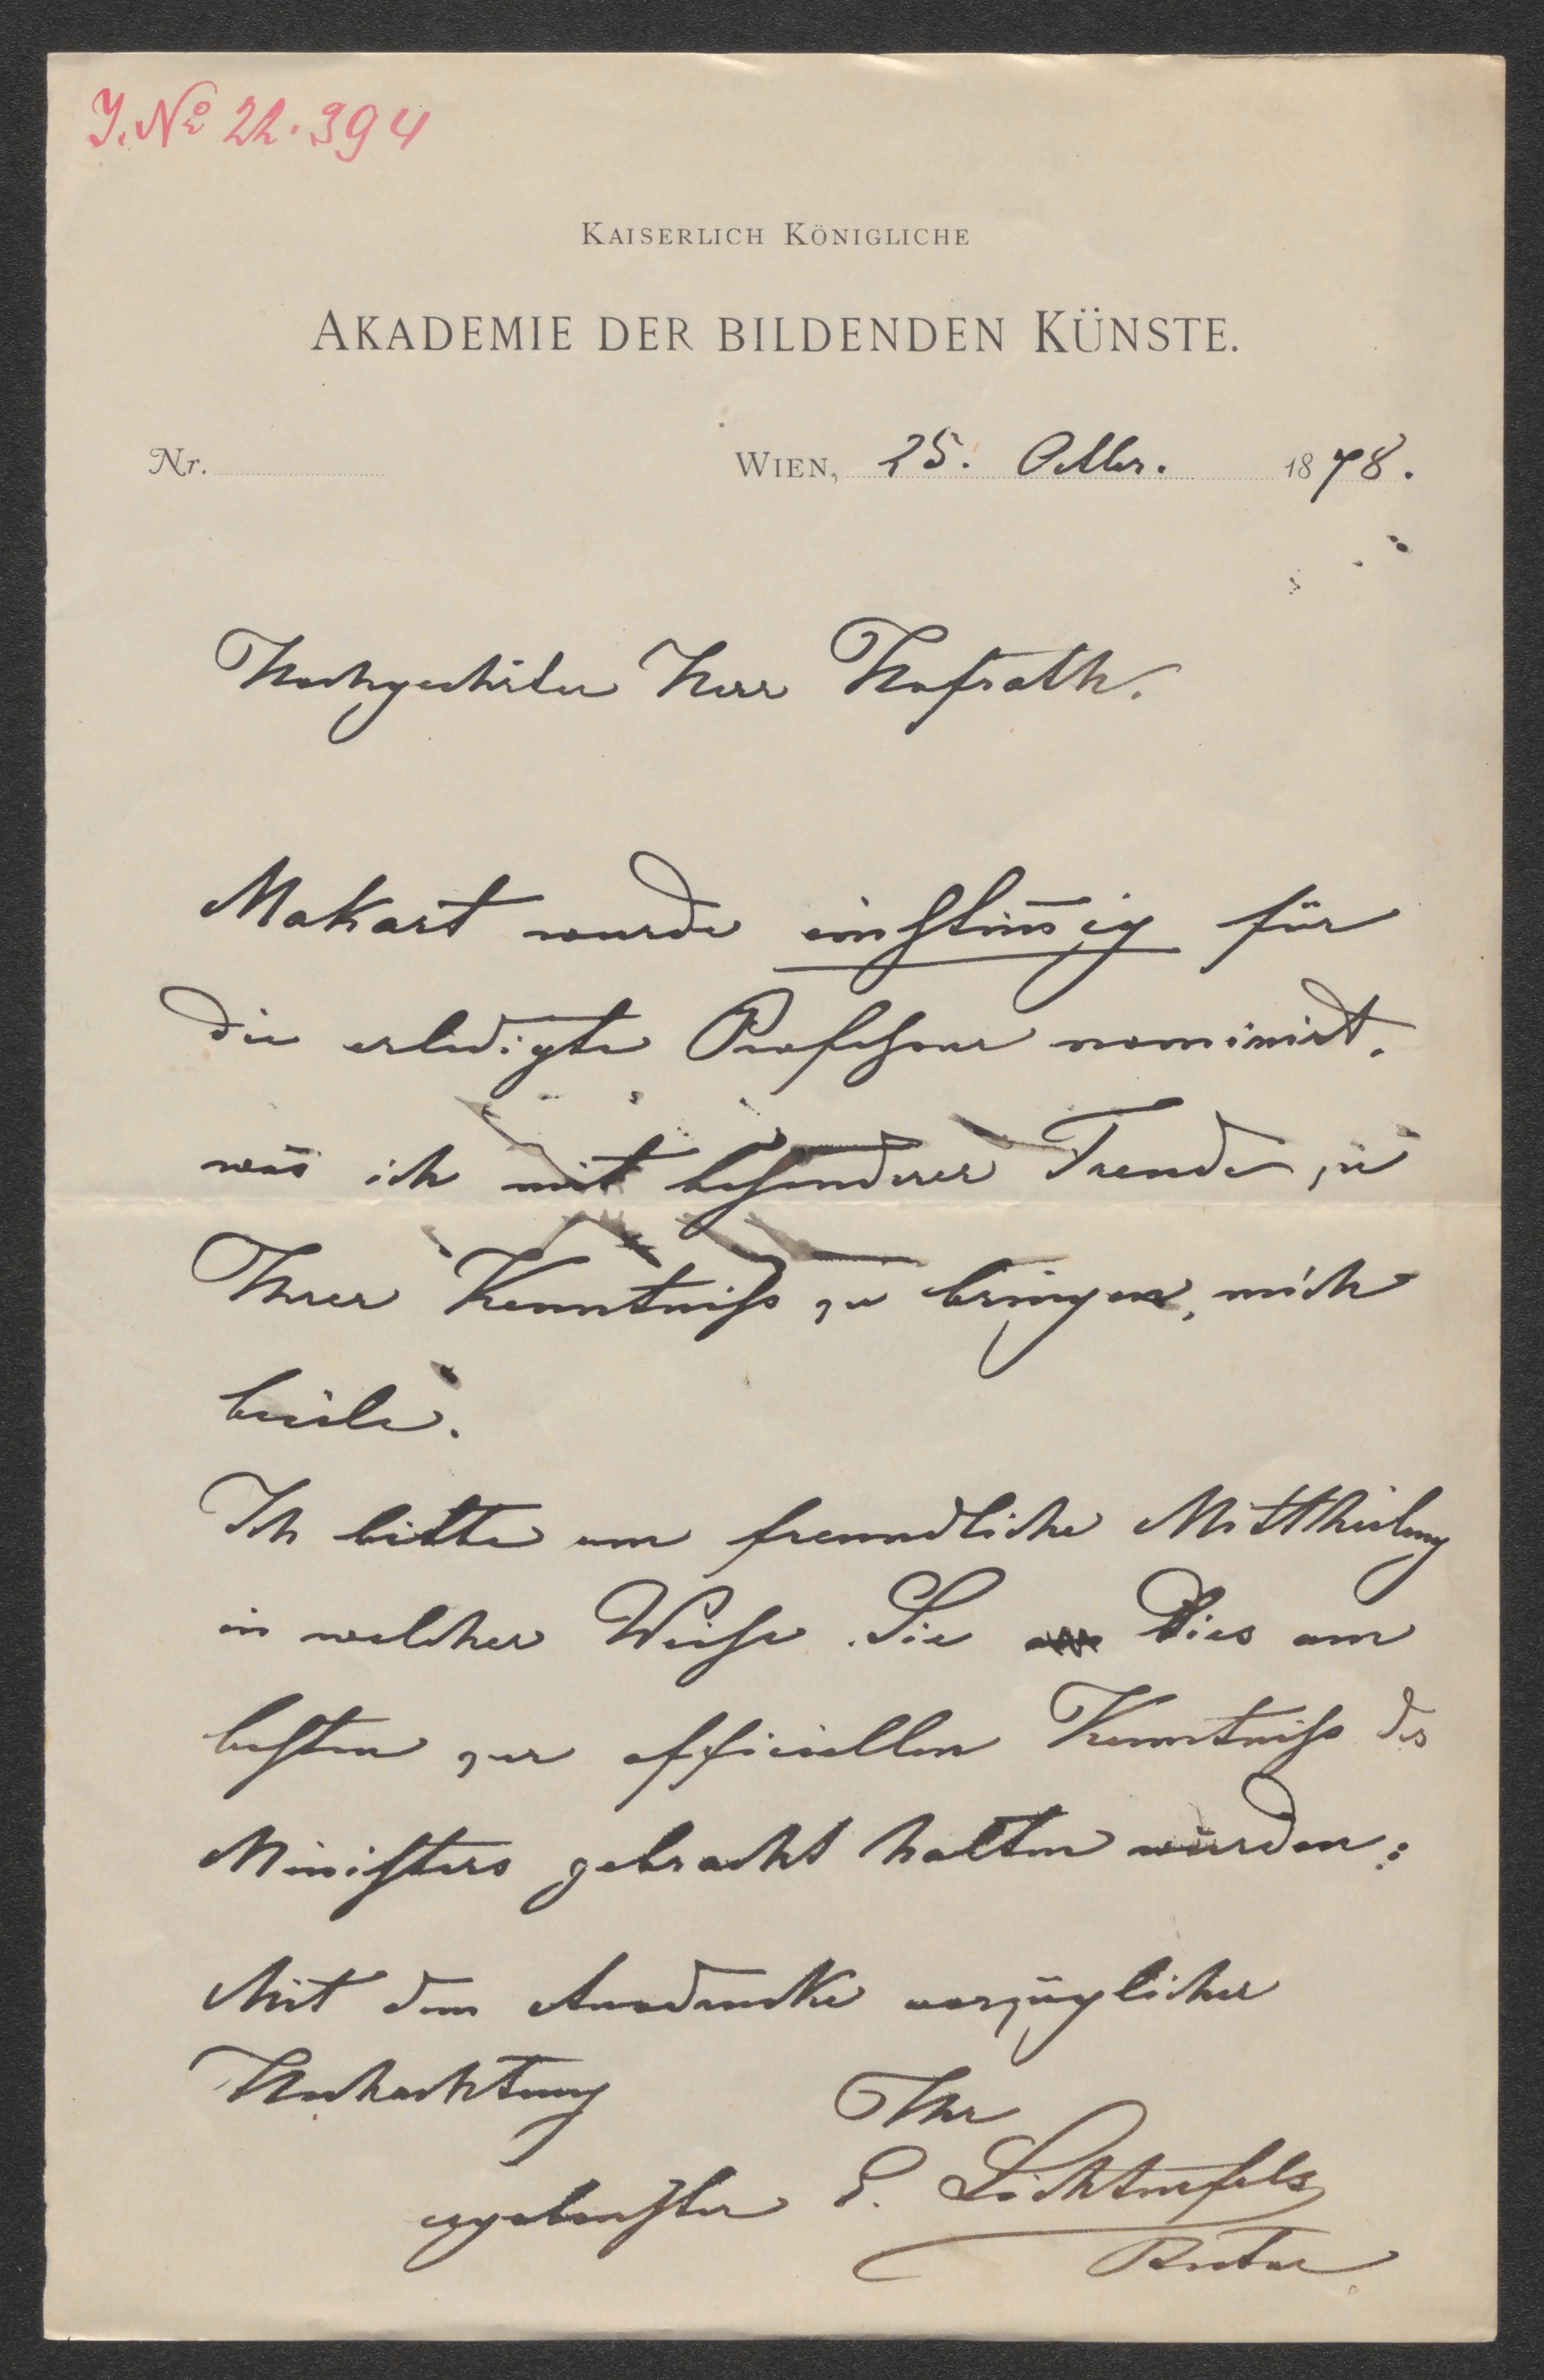 J. No 22.394
KAISERLICH KÖNIGLICHE
AKADEMIE DER BILDENDEN KÜNSTE.
Nr. WIEN, 25. Octbr. 1878.
Hochgeehrter Herr Hofrath.
Makart wurde einstim̄ig für
die erledigte Professur nominirt,
was ich mit besonderer Freude zu
Ihrer Kenntniß zu bringen, mich
beeile.
Ich bitte um freundliche Mittheilung
in welcher Weise Sie Dies am
besten zur officiellen Kenntniß des
Ministers gebracht halten würden;
Mit dem Ausdrucke vorzüglicher
Hochachtung Ihr
ergebenster E. Lichtenfels
Rector